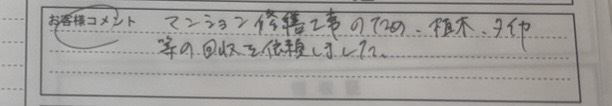 お客様コメント マンション修繕工事のため、植木、タイヤ
等の回収を依頼しました。